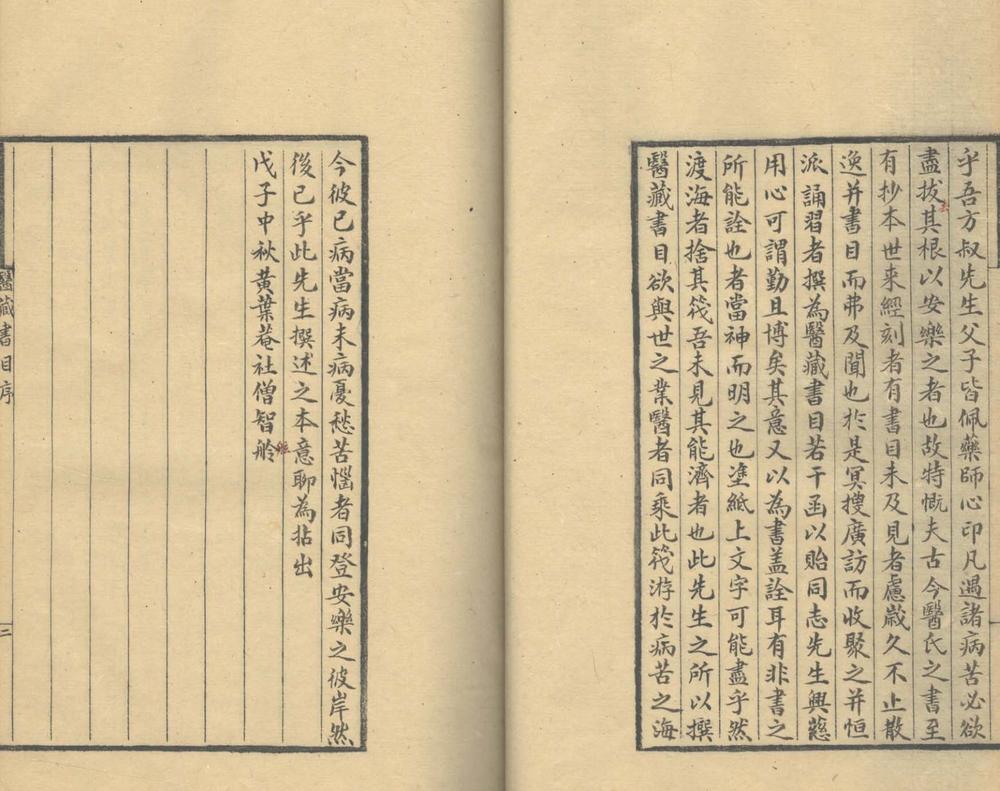 乎吾方叔先生父子皆佩藥師心印凡遇諸病苦必欲
盡拔其根以安樂之者也故特慨夫古今醫氏之書至
有抄本世来經刻者有書目未及見者慮歲久不止散
逸并書目而弗及聞也於是冥搜廣訪而收聚之并恒
派誦習者撰為醫藏書目若干函以貽同志先生興慈
用心可謂勤且博矣其意又以為書盖詮耳有非書之
所能詮也者當神而明之也塗紙上文字可能盡乎然
渡海者捨其筏吾未見其能濟者也此先生之所以撰
醫藏書目欲與世之業醫者同乘此筏游於病苦之海
今彼已病當病未病憂愁苦惱者同登安樂之彼岸然
後已乎此先生撰述之本意聊為拈出
戊子中秋黄葉菴社僧智舲
醫藏書目序
二